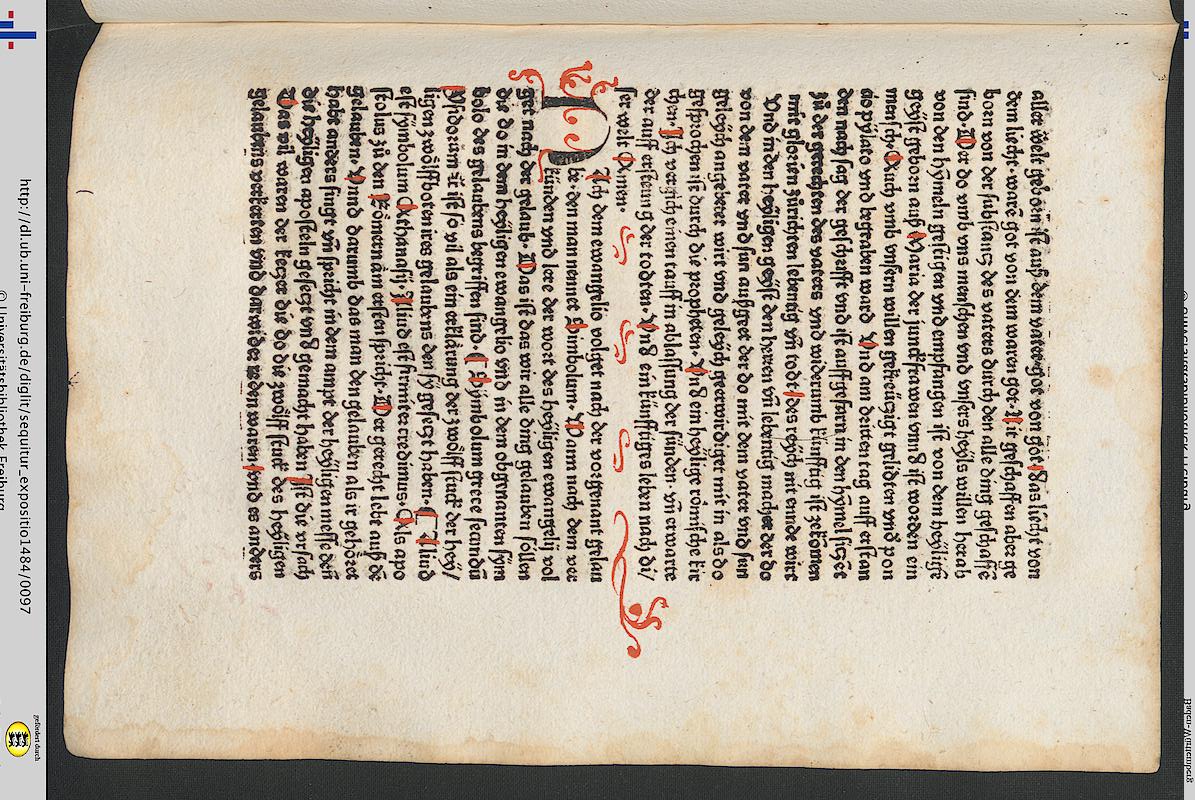 aller welt geborn ist auß dem vater. got von got. das liecht von
dem liecht. ware got von dem waren got. Nit geschaffen aber ge
born von der substantz des vaters durch den alle ding geschaffē
sind Der do vmb vns menschen vnd vnsers heyls willen herab
von den hymeln gestigen vnd empfangen ist von dem heylige
geyst geborn auß Maria der junckfrawen vnnd ist worden ein
mensch. Auch vmb vnsern willen gekreutzigt geliden vnd pon
cio pylato vnd begraben ward. Vnd am dritten tag auff erstan
den nach sag der geschrifft vnd ist auffgefarn in den hymel sitzet
zů der gerechten des vaters vnd widerumb künfftig ist zekomen
mit glorien zůrichten lebentig vn̄ todt des reych nit ennde wirt
Vnd in den heyligen geyst den herren vn̄ lebentig macher der do
von dem vater vnd sun außgeet der do mit dem vater vnd sun
geleych angebetet wirt vnd geleych geerwirdiget mit in als do
gesprochen ist durch die propheten. Vnd ein heylige römische kir
chen. Ich vergich einen tauff in ablassung der sünden. vn̄ erwarte
der auff ersteung der todten. Vnd ein künfftiges leben nach di/
ser welt Amen.
NAch dem ewangelio volget nach der vorgenant gelau
be. den man nennet Simbolum. Wann nach dem ver
künden vnd lere der wort des heyligen ewangelij vol
get nach der gelaub. Das ist das wir alle ding gelauben söllen
die do in dem heyligen ewangelio vnd in dem obgenanten sym
bolo des gelaubens begriffen sind. Symbolum grece secundū
Ysidorum ꝛc ist so vil als ein erklärung der zwölff stuck der hey/
ligen zwölffboten ires gelaubens den sy gesetzt haben. Aliud
est symbolum Athanasij. Aliud est firmiter credimus. Als apo
stolus zů den Römern am ersten spricht. Der gerecht lebt auß dē
gelauben. Vnnd darumb das man den gelauben als ir gehöret
habt anders singt vn̄ spricht in dem ampt der heyligen messe den̄
die heyligen aposteln gesetzt vnd gemacht haben Ist die vrsach
Das vil waren der ketzer die do die zwölff stuck des heyligen
gelaubens verkerten vnd darwider reden waren vnd es anders
http://dl.ub.uni-freiburg.de/diglit/sequitur_expositio1484/0097
© Universitätsbibliothek Freiburg
gefördert durch